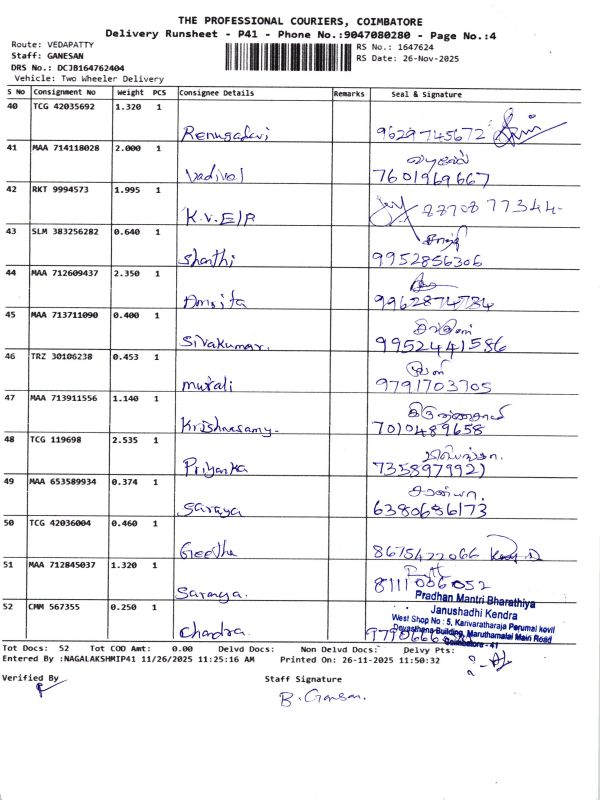 THE PROFESSIONAL COURIERS, COIMBATORE
Delivery Runsheet - P41 - Phone No.:9047080280 - Page No.:4
Route: VEDAPATTY
Staff: GANESAN
DRS No.: DCJB164762404
Vehicle: Two Wheeler Delivery
RS No.: 1647624
RS Date: 26-Nov-2025
S No Consignment No Weight PCS Consignee Details Remarks Seal & Signature
40 TCG 42035692 1.320 1
Renugadevi 9629745672
41 MAA 714118028 2.000 1
Vadivel 7601969667
42 RKT 9994573 1.995 1
K.V.E/B 8870877344
43 SLM 383256282 0.640 1 சாந்தி
Shanthi 9952856306
44 MAA 712609437 2.350 1
Amrita 9962874734
45 MAA 713711090 0.400 1
Sivakumar. 9952441586
46 TRZ 30106238 0.453 1
murali 9791703705
47 MAA 713911556 1.140 1
Krishnasamy 7010489658
48 TCG 119698 2.535 1
Priyanka 7358979921
49 MAA 653589934 0.374 1 சரண்யா.
Saraya 6380686173
50 TCG 42036004 0.460 1
Geetha 8675422066
51 MAA 712845037 1.320 1
Saranya. 8111006052
Pradhan Mantri Bharathiya
Janushadhi Kendra
52 CMM 567355 0.250 1 West Shop No : 5, Karivaratharaja Perumal kovil
Devasthana Building, Maruthamalai Main Road
Chandra Coimbatore - 41
Tot Docs: 52 Tot COD Amt: 0.00 Delvd Docs: Non Delvd Docs: Delvy Pts:
Entered By :NAGALAKSHMIP41 11/26/2025 11:25:16 AM Printed On: 26-11-2025 11:50:32
Verified By Staff Signature
B. Gansan.